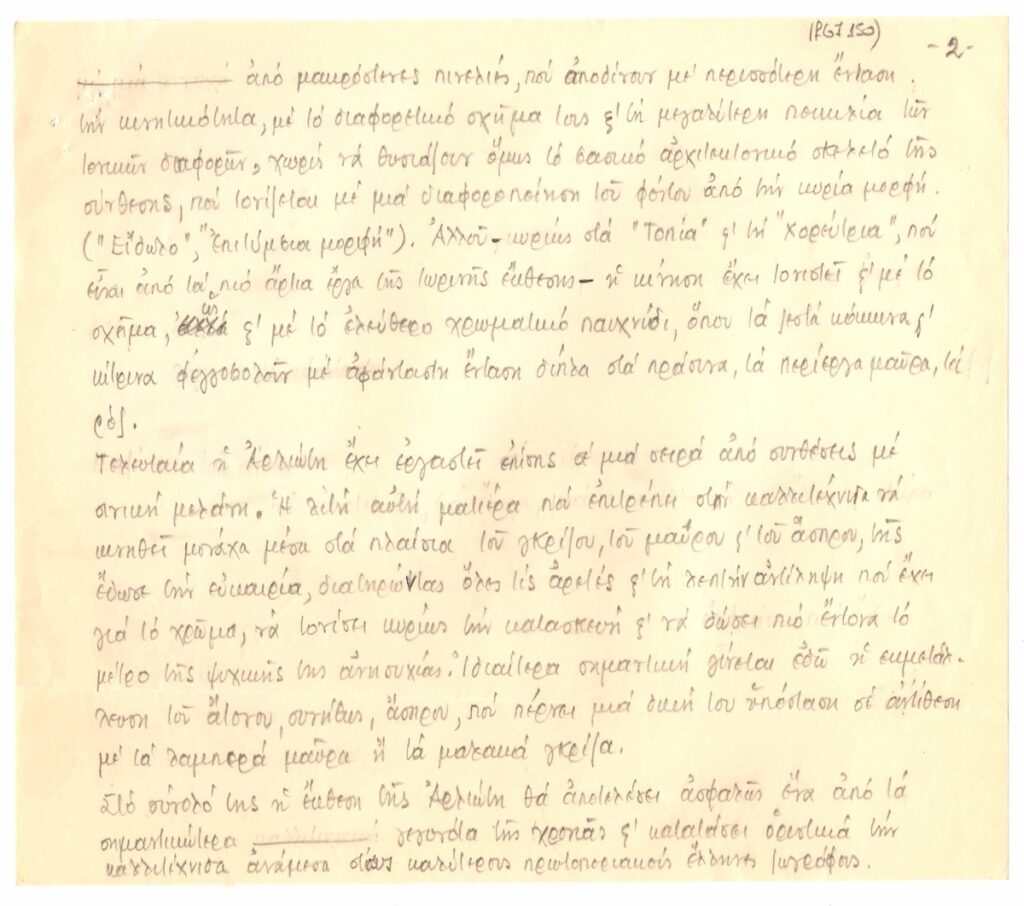 (PGI 150)
-2-
ἀπό μακρόστενες πινελιές, πού ἀποδίνουν μέ περισσότερη ἔνταση
τήν κινητικότητα, μέ τό διαφορετικό σχῆμα τους ϛ' τή μεγαλύτερη ποικιλία τῶν
τονικῶν διαφορῶν, χωρίς νά θυσιάζουν ὅμως τό βασικό ἀρχιτεκτονικό σκελετό τῆς
σύνθεσης, πού τονίζεται μέ μιά διαφοροποίηση τοῦ φόντου ἀπό τήν κυρία μορφή.
("Εἴδωλο", "Ἐπιτύμβια μορφή"). Ἀλλοῦ - κυρίως στά "Τοπία" ϛ' τή "Χορεύτρια", πού
εἶναι ἀπό τά πιό ἄρτια ἔργα τῆς τωρινῆς ἔκθεσης - ἡ κίνηση ἔχει τονιστεῖ ϛ' μέ τό
σχῆμα, ϛ' μέ τό ἐλεύθερο χρωματικό παιχνίδι, ὅπου τά ζεστά κόκκινα ϛ'
κίτρινα φεγγοβολοῦν μέ ἀφάνταστη ἔνταση δίπλα στά πράσινα, τά περίεργα μαῦρα, τά
ρόζ.
Τελευταία ἡ Ἀρλιώτη ἔχει ἐργαστεῖ ἐπίσης σέ μιά σειρά ἀπό συνθέσεις μέ
σινική μελάνη. Ἡ λιτή αὐτή ματιέρα πού ἐπιτρέπει στήν καλλιτέχνιδα νά
κινηθεῖ μονάχα μέσα στά πλαίσια τοῦ γκρίζου, τοῦ μαύρου ϛ' τοῦ ἄσπρου, τῆς
ἔδωσε τήν εὐκαιρία, διατηρώντας ὅλες τίς ἀρετές ϛ' τή λεπτήν ἀντίληψη πού ἔχει
γιά τό χρῶμα, νά τονίσει κυρίως τήν κατασκευή ϛ' νά δώσει πιό ἔντονα τό
μέτρο τῆς ψυχικῆς της ἀνησυχίας. Ἰδιαίτερα σημαντική γίνεται ἐδῶ ἡ εκμετάλ-
λευση τοῦ ἄτονου, συνήθως, ἄσπρου, πού πέρνει μιά δική του ὑπόσταση σέ ἀντίθεση
μέ τά λαμπερά μαῦρα ἤ τά μαλακά γκρίζα.
Στό σύνολό της ἡ ἔκθεση τῆς Ἀρλιώτη θά ἀποτελέσει ἀσφαλῶς ἕνα ἀπό τά
σημαντικώτερα γεγονότα τῆς χρονιᾶς ϛ' κατατάσει ὁριστικά τήν
καλλιτέχνιδα ἀνάμεσα στούς καλύτερους πρωτοποριακούς ἕλληνες ζωγράφους.